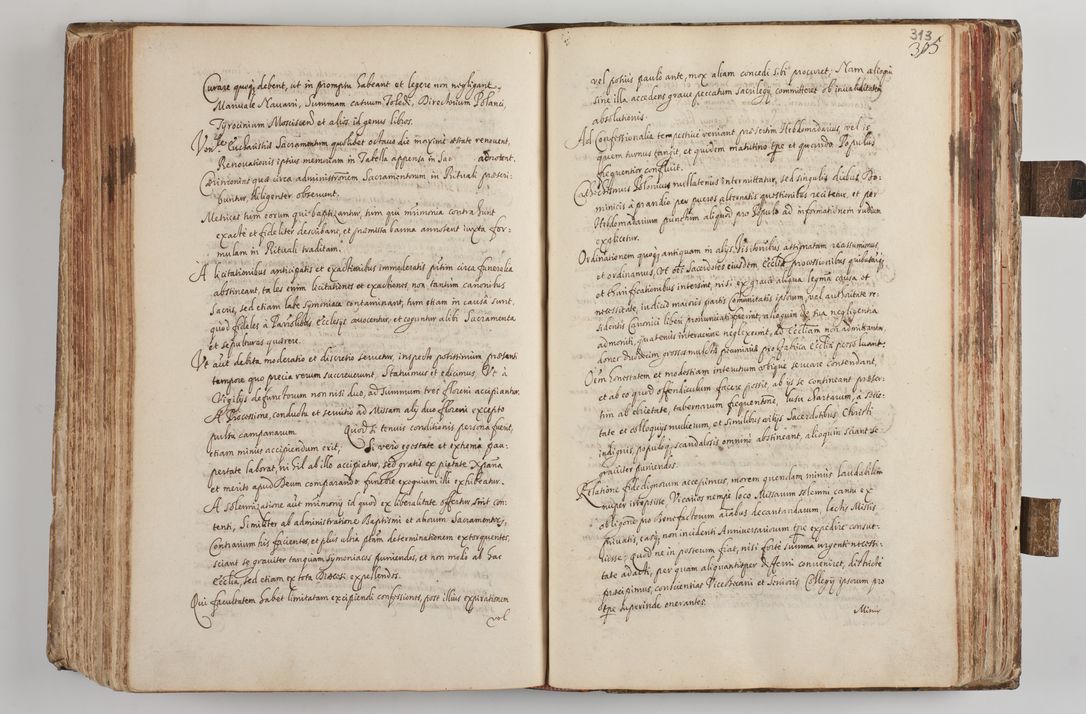 Curare quoq debent, ut in promptu habeant et legere non negligant
Manuale Navarri, Summam casuum Toleti, Directorium Polanci,
Tyrocinium Mosciscen et alios id genus libros.
Ven: Eucharistiæ Sacramentum quolibet octavo die maxime æstate renovent,
Renovationis ipsius memoriam in Tabella appensa in Sac adnotent.
quæ circa administrõnem Sacramentorum in Rituali præscri-
buntur, diligenter observent.
Metricas tum eorum qui baptizantur, tum qui mrimonia contrahunt
exactè et fideliter describant, et præmissa banna annotent iuxta for-
mulam in Rituali traditam.
A licitationibus anticipatis et exactionibus immoderatis prtim circa funeralia
abstineant, tales enim licitationes et exactiones, non tantum canonibus
Sacris, sed etiam labe symoniaca contaminant, tum etiam in causa sunt,
quod fideles a Parochialibus Ecclesys avocentur, et coguntur alibi Sacramenta
et sepulturas quærere.
Ut aut debita moderatio et discretio servetur, inspecto potissimum præsenti
tempore quo precia rerum succreverunt, Statuimus et edicimus. Ut à
Vigilys defunctorum non nisi duo, ad summum tres floreni accipiantur
A Processione, conductu et servitio ad Missam aly duo floreni excepto
pulsu campanarum Quod si tenuis conditionis persona fuerit,
etiam minus accipiendum erit, Si verò egestate et extrema pau-
pertate laborat, nihil ab illo accipiatur, sed gratis ex pietate Xpiana
et merito apud Deum comparando funebre exequium illi exhibeatur.
A solemnizatione aut mrimony id quod ex liberalitate offertur sint con-
tenti, Similiter ab administratione Baptismi et aliorum Sacramentor,
Contrarium his facientes, et plus ultra ptam determinationem extorquentes,
sciant se graviter tanquam symoniacos puniendos, et non modo ab hac
Ecclia, sed etiam ex tota Diœcesi expellendos.
Qui facultatem habet limitatam excipiendi confessiones, post illius expirationem
vel
313
315
vel potius paulo ante, mox aliam concedi sibi procuret, Nam alioqui
sine illa accedens grave peccatum sacrilegy committeret ob invaliditatem
absolutionis.
Ad Confessionalia tempestive veniant præsertim Hebdomadarius, vel is
quem turnus tangit, et quidem matutino tpe et quando Populus
frequentior confluit.
Catechismus Polonicus nullatenus intermittatur, sed singulis diebus Do-
minicis à prandio per pueros alternatis quæstionibus recitetur, et per
Hebdomadarium punctum aliquod pro Populo ad informationem rudium
explicetur.
Ordinationem quoq antiquam in alys Visitõnibus assignatam reassumimus,
et ordinamus, Ut oes Sacerdotes eiusdem Eccliæ processionibus quibusvis
et thurificationibus intersint, nisi ex gravi aliqua legitima causa et
necessitate, iudicio maioris partis Communitatis ipsorum, vel authoritate re-
sidentis Canonici liberi pronunciati fuerint, alioquin ex sua negligentia
admoniti, quatenus interesse neglexerint, ad Eccliam non admittantur,
donec duodecim grossos mulctæ pecuniariæ pro fabrica Eccliæ persolvant.
Oem honestatem et modestiam interutrum ubique servare contendant,
et ab eo quod offendiculum facere possit, ab ys se contineant præser-
tim ab ebrietate, tabernarum frequentone, lusu chartarum, a socie-
tate et colloquys mulierum, et similibus vitys Sacerdotibus Christi
indignis, populoq scandalosis omnino abstineant, alioquin sciant se
graviter puniendos.
Relatione fidedignorum accepimus, morem quendam minus laudabilem
nuper irrepsisse, Vicarios nempe loco Missarum solemni cantu ex
obligone pro benefactorum aiabus decantandarum, lectis Missis
privatis, easq non incidenti Anniversariorum tpe expedire consue-
visse; quod ne in posterum fiat, nisi forte summa urgenti necessi-
tate adacti, per quam aliquantisper differri conveniret, districte
præcipimus, conscientias Vicedecani et Senioris Collegy ipsorum pro
tpe superinde onerantes.
Minis